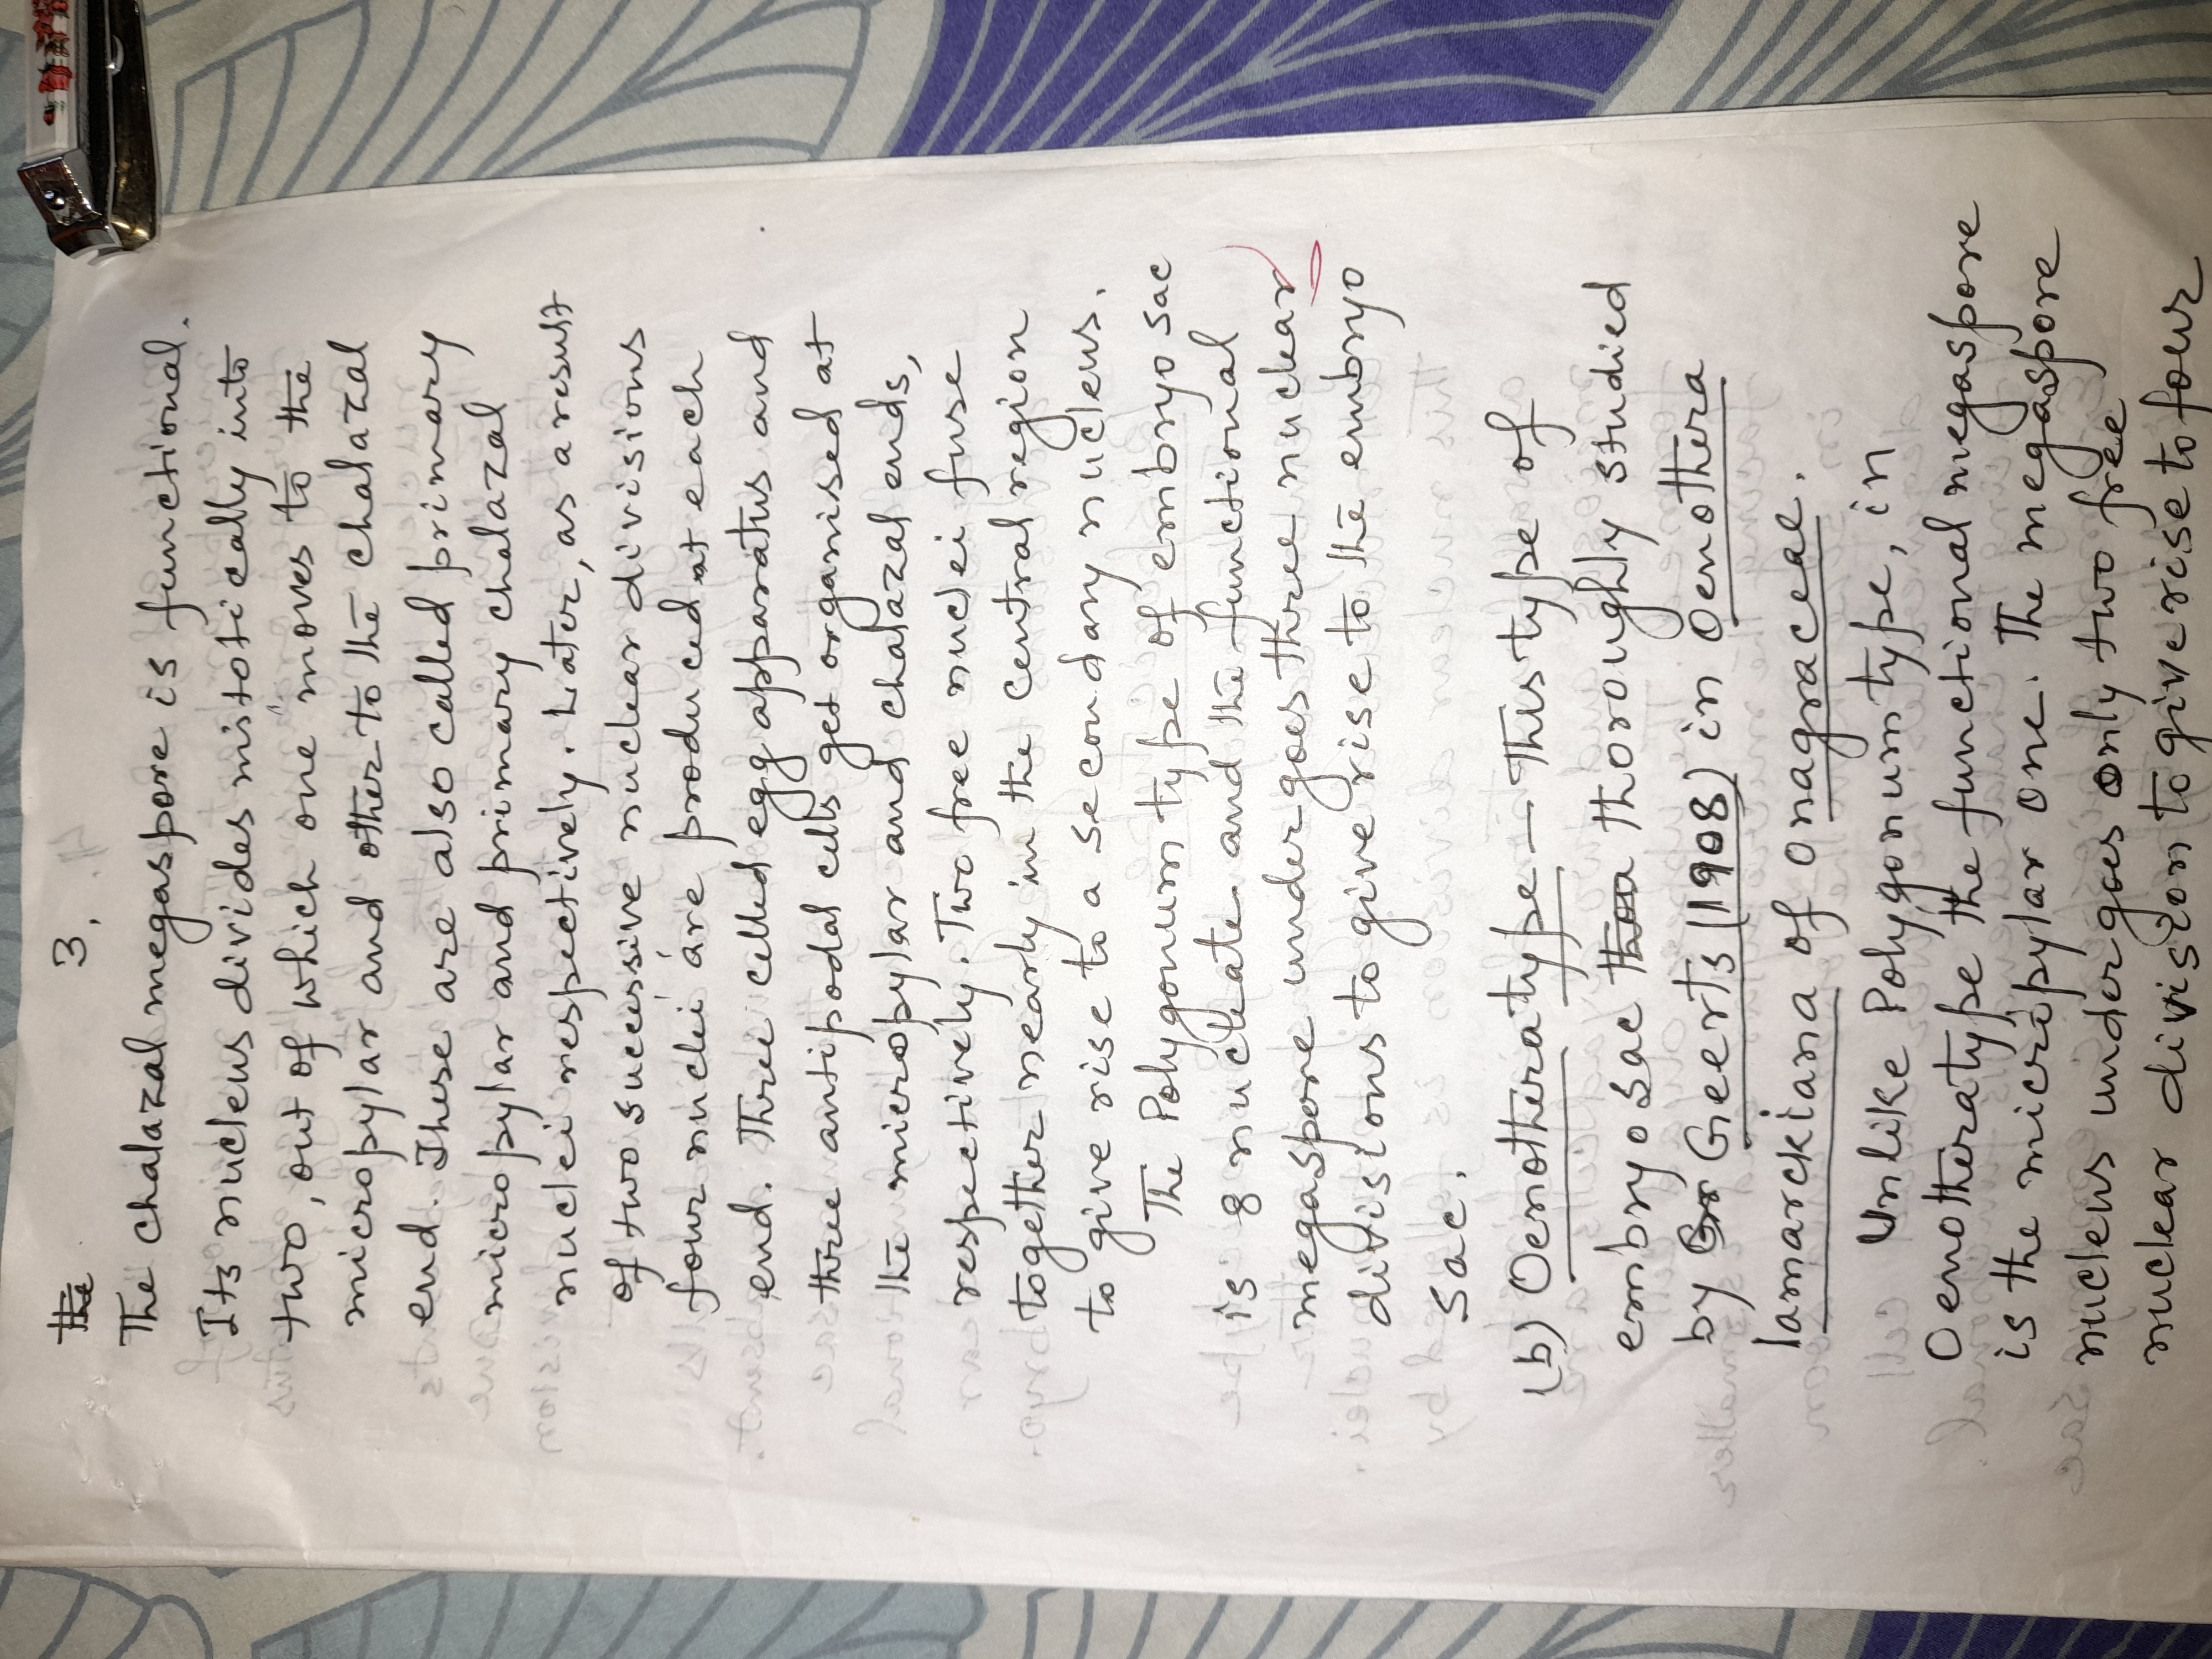 3.
the
The chalazal megaspore is functional.
Its nucleus divides mistotically into
two, out of which one moves to the
micropylar and other to the chalazal
end. These are also called primary
micropylar and primary chalazal
nuclei respectively. Later, as a result
of two successive nuclear divisions
four nuclei are produced at each
end. Three celled egg apparatus and
three antipodal cells get organised at
the micropylar and chalazal ends,
respectively. Two free nuclei fuse
together nearly in the central region
to give rise to a secondary nucleus.
The Polygonum type of embryo sac
is 8 nucleate and the functional
megaspore undergoes three nuclear
divisions to give rise to the embryo
sac.
(b) Oenothera type — This type of
embryo sac thoroughly studied
by Geerts (1908) in Oenothera
lamarckiana of onagraceae.
Unlike Polygonum type, in
Oenothera type the functional megaspore
is the micropylar one. The megaspore
nucleus undergoes only two free
nuclear division to give rise to four